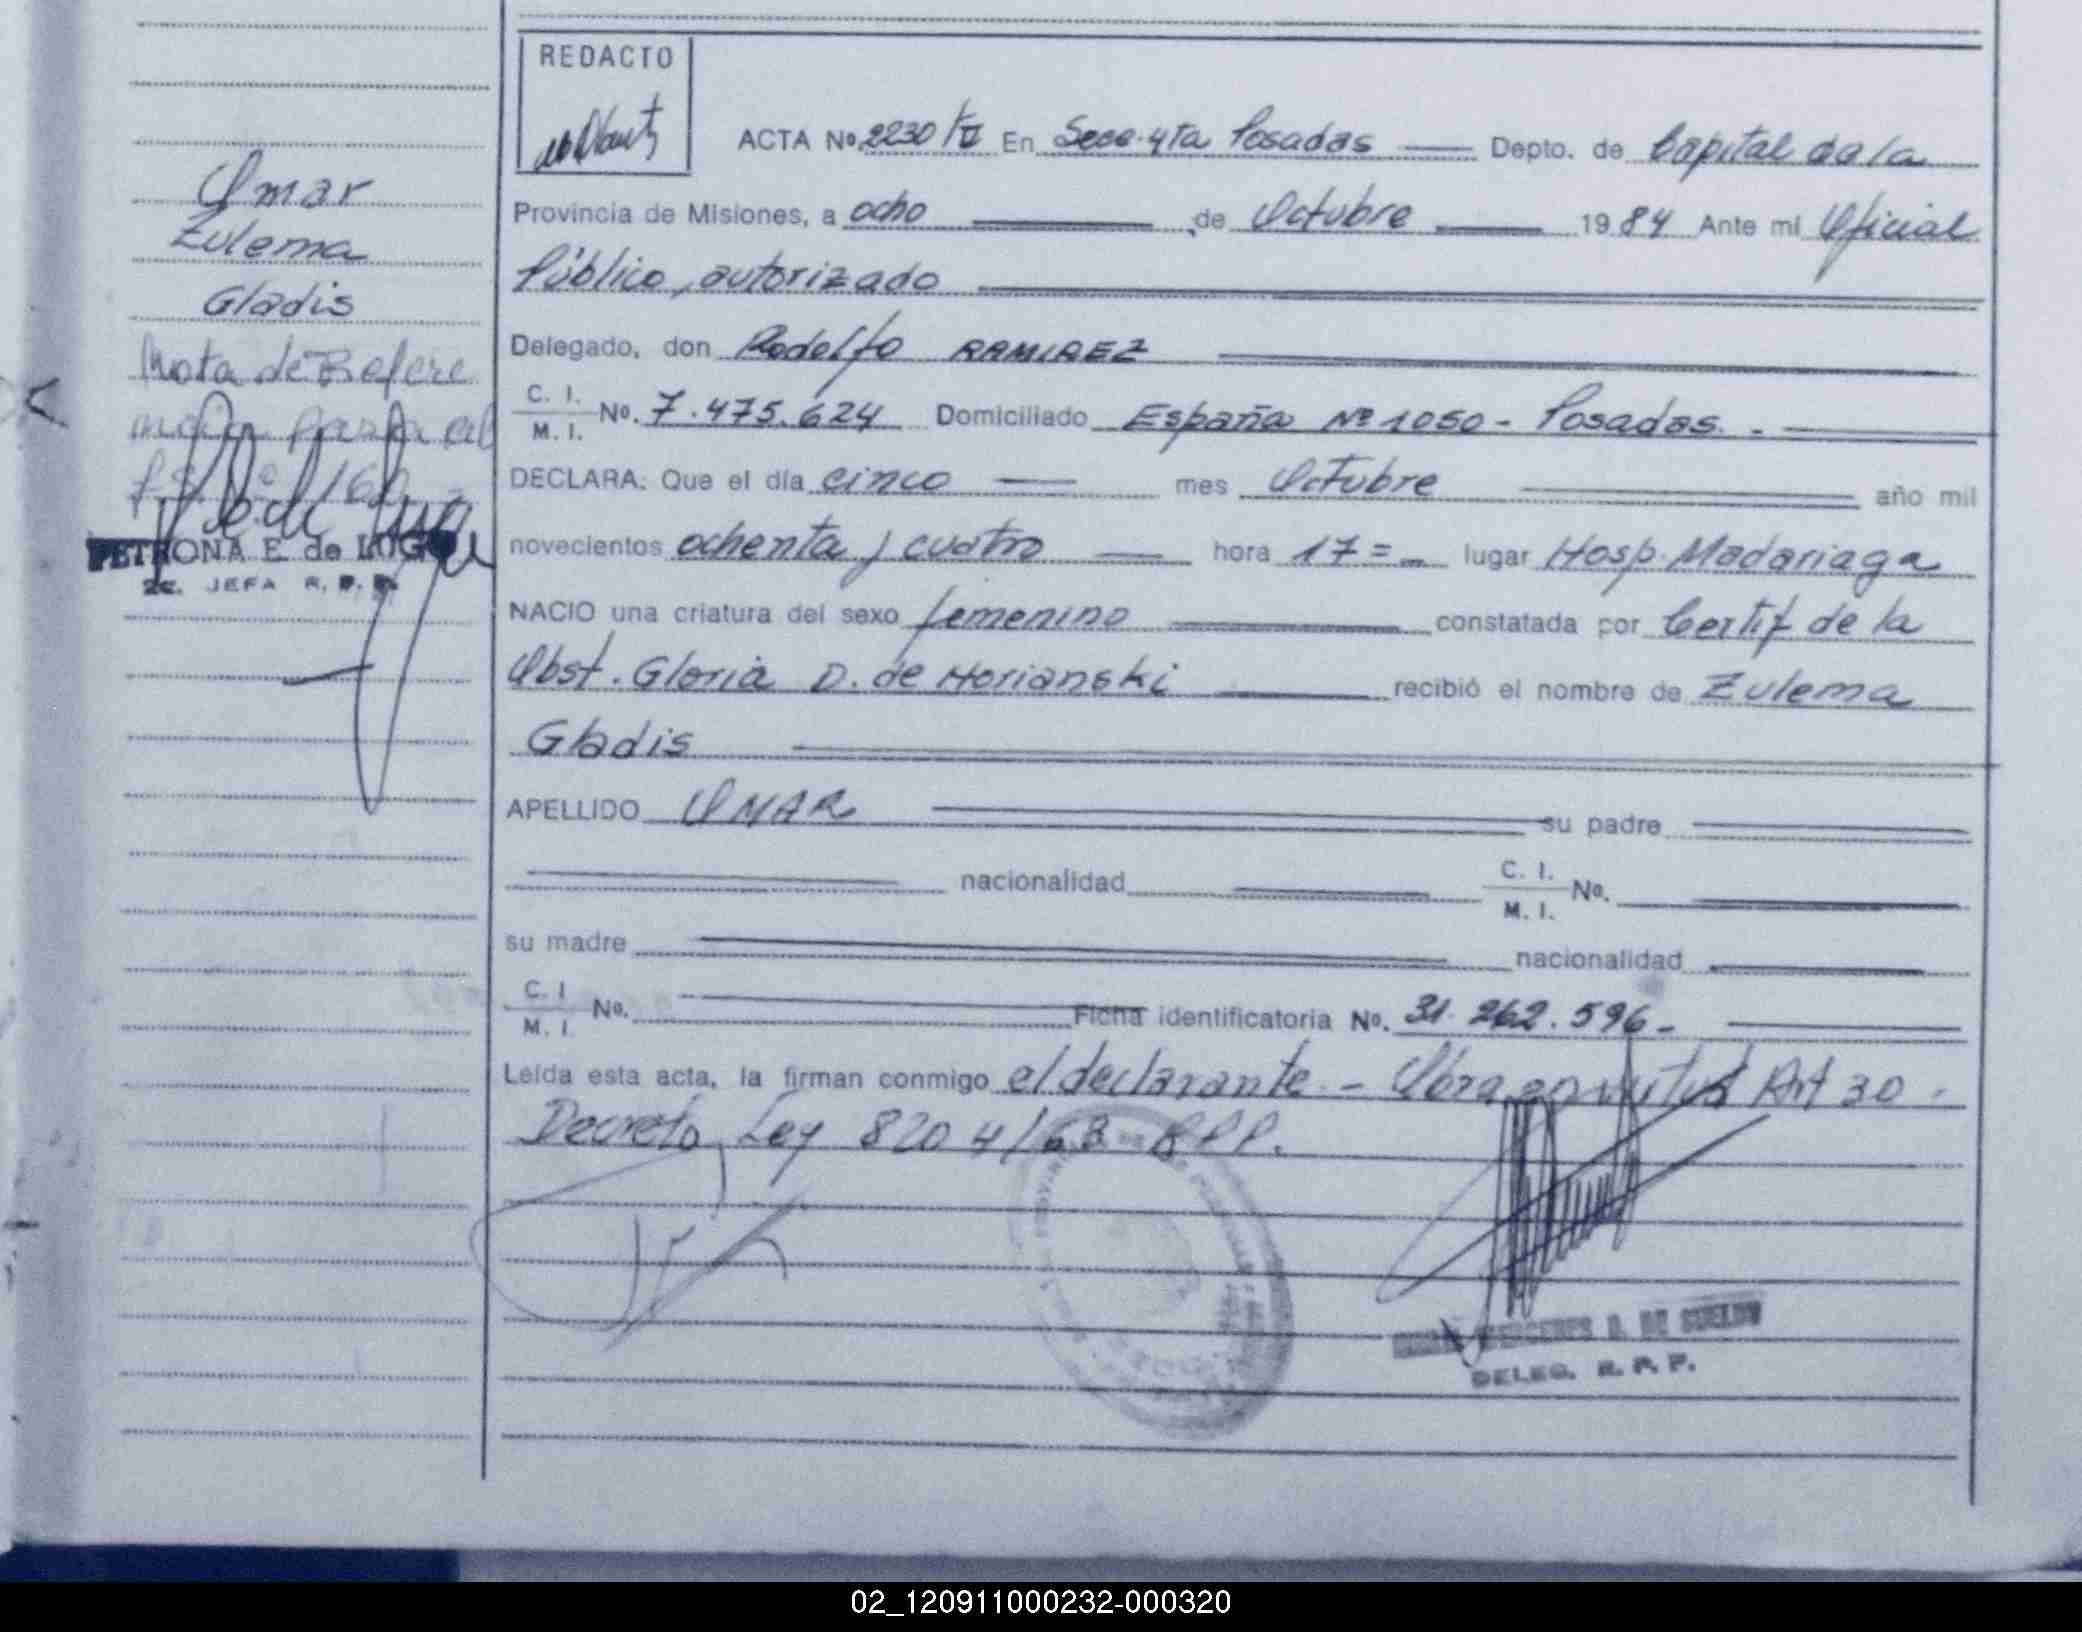 Omar
Zulema
Gladis
Nota de Refere
ncia pasa al
160
PETRONA E. de LUGO
2e. JEFA R. P. P.
REDACTO
ACTA Nº 2230/ En Secc. 4ta Posadas Depto. de Capital de la
Provincia de Misiones, a ocho de Octubre 1984 Ante mi Oficial
Público, autorizado
Delegado, don Rodolfo RAMIREZ
C. I.
M. I. No. 7.475.624 Domiciliado España Nº 1050 - Posadas. -
DECLARA: Que el día cinco mes Octubre año mil
novecientos ochenta y cuatro hora 17 = lugar Hosp. Madariaga
NACIO una criatura del sexo femenino constatada por Certif de la
Obst. Gloria D. de Horianski recibió el nombre de Zulema
Gladis
APELLIDO OMAR su padre
nacionalidad C. I.
M. I. No.
su madre nacionalidad
C. I
M. I. No. Ficha identificatoria No. 31.262.596 -
Leída esta acta, la firman conmigo el declarante. - Obra en virtud Art 30 -
Decreto Ley 8204/63 RPP.
DE SUELDO
DELEG. R. P. P.
02_120911000232-000320